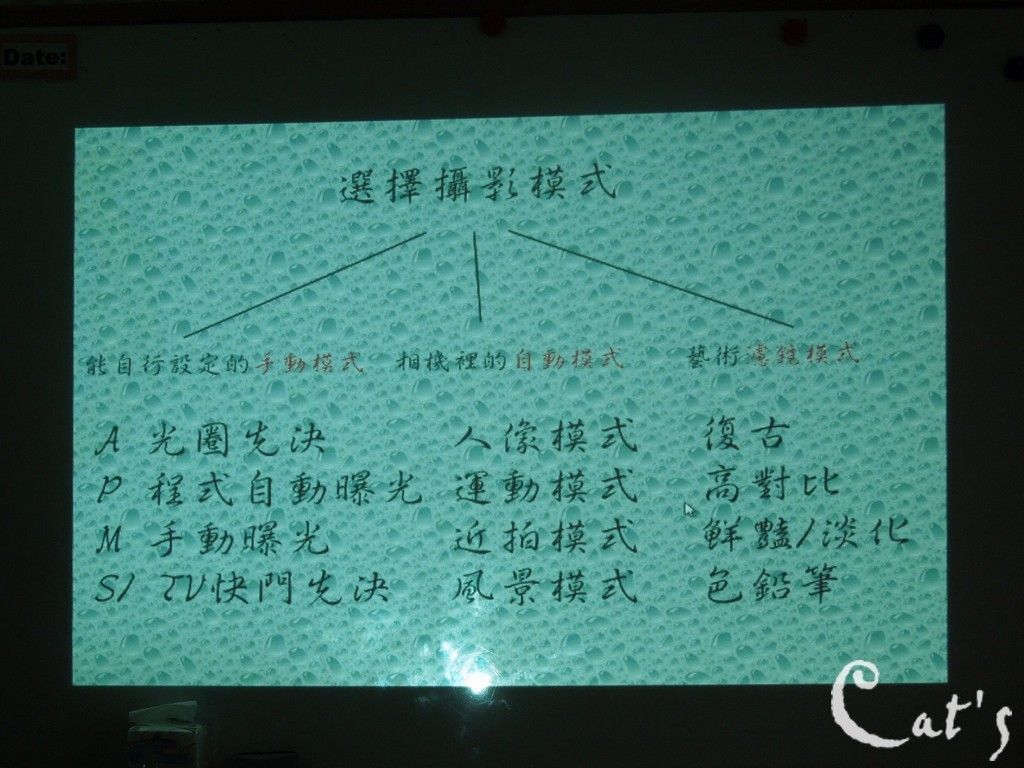 Date:
選擇攝影模式
能自行設定的手動模式 相機裡的自動模式 藝術濾鏡模式
A 光圈先決 人像模式 復古
P 程式自動曝光 運動模式 高對比
M 手動曝光 近拍模式 鮮豔/淡化
S/ TV快門先決 風景模式 色鉛筆
Cat's